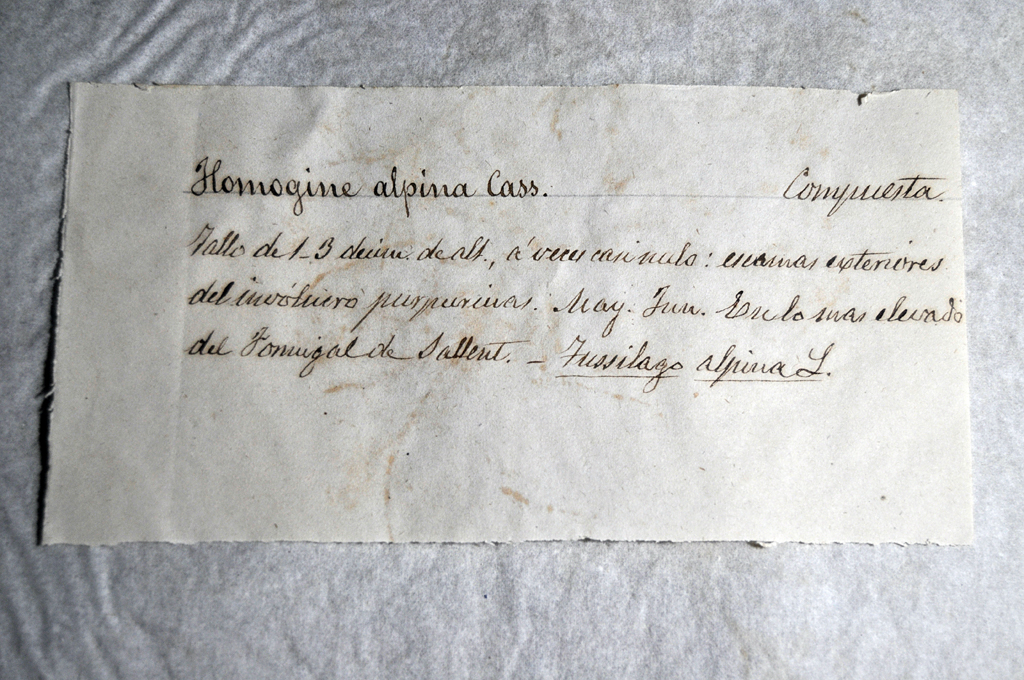 Homogine alpina Cass. Compuesta.
Tallo de 1-3 decím. de alt., á veces casi nulo: escamas exteriores
del invólucro purpurinas. May. Jun. En lo mas elevado
del Formigal de Sallent. — Tussilago alpina L.